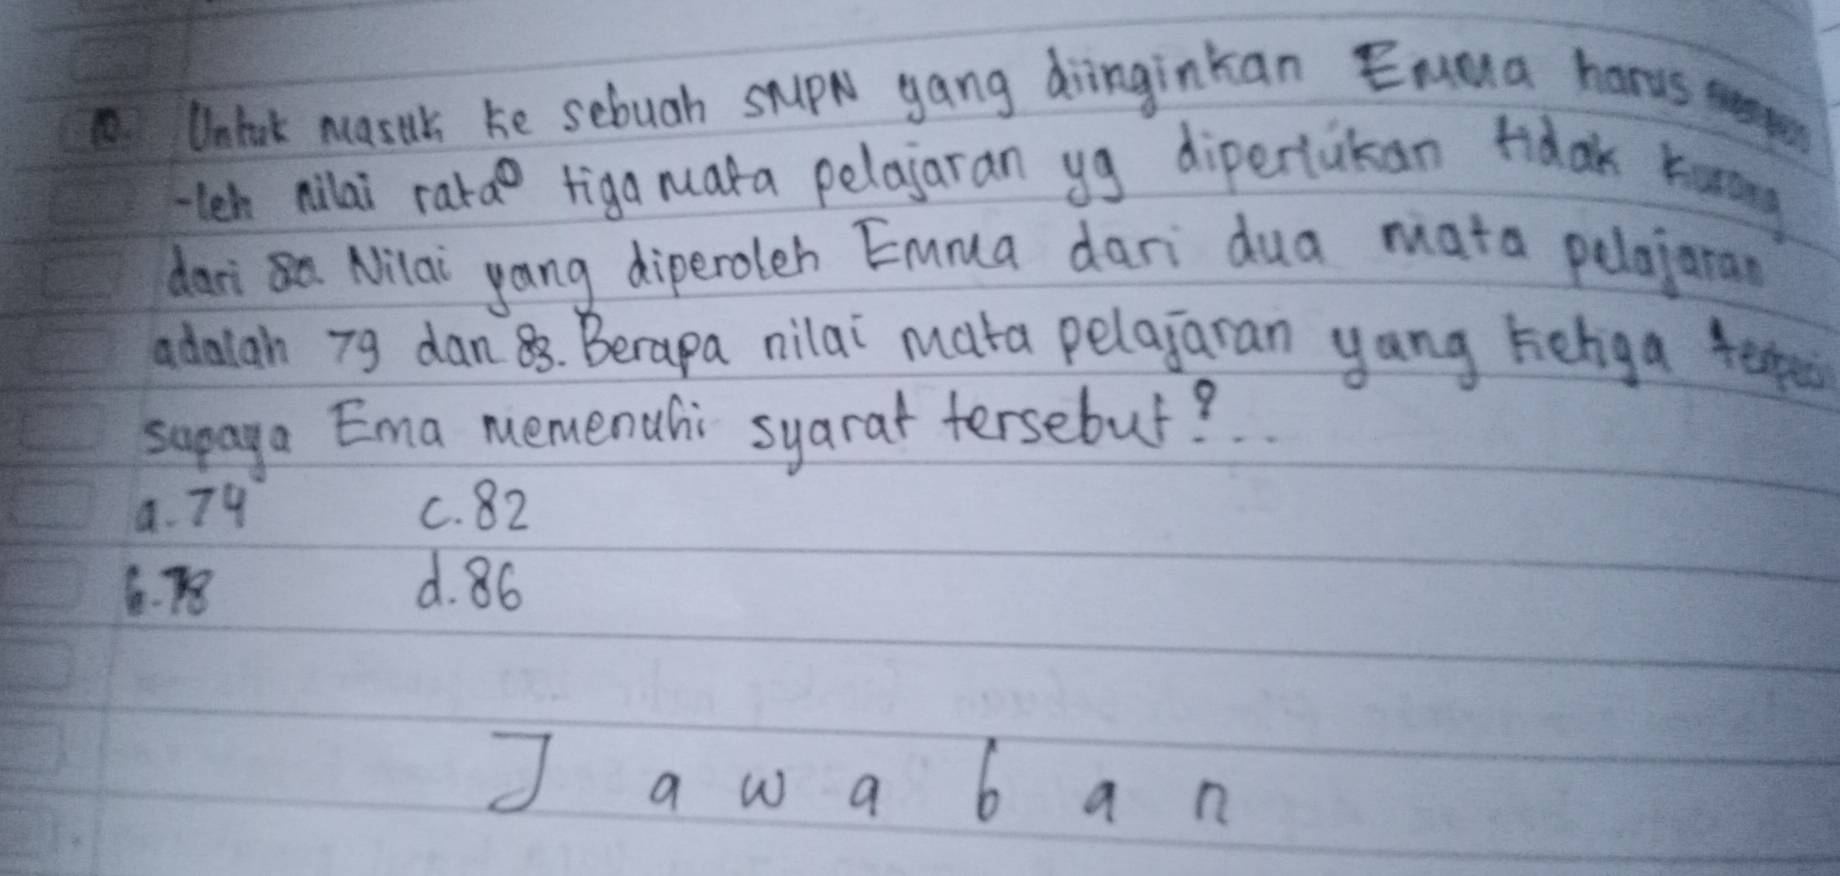 10. Untuk masuk ke sebuah SMPN yang diinginkan Emma harus
-leh nilai rata² tiga mata pelajaran yg diperlukan tidak kurang
dari 80. Nilai yang diperoleh Emma dari dua mata pelajaran
adalah 79 dan 83. Berapa nilai mata pelajaran yang ketiga
supaya Ema memenuhi syarat tersebut?...
a. 74 c. 82
b. 78 d. 86
Jawaban